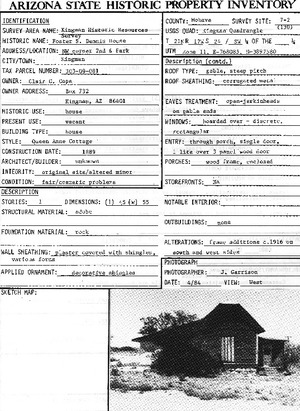 ARIZONA STATE HISTORIC PROPERTY INVENTORY
IDENTIFICATION
SURVEY AREA NAME: Kingman Historic Resources Survey
HISTORIC NAME: Foster S. Dennis House
ADDRESS/LOCATION: NW corner 2nd & Park
CITY/TOWN: Kingman
TAX PARCEL NUMBER: 303-08-081
OWNER: Clair C. Cope
OWNER ADDRESS: Box 732
Kingman, AZ 86401
HISTORIC USE: house
PRESENT USE: vacant
BUILDING TYPE: house
STYLE: Queen Anne Cottage
CONSTRUCTION DATE: 1889
ARCHITECT/BUILDER: unknown
INTEGRITY: original site/altered minor
CONDITION: fair/cosmetic problems
DESCRIPTION
STORIES: 1 DIMENSIONS: (l) 45 (w) 55
STRUCTURAL MATERIAL: adobe
FOUNDATION MATERIAL: rock
WALL SHEATHING: plaster covered with shingles, various forms
APPLIED ORNAMENT: decorative shingles
SKETCH MAP:
COUNTY: Mohave SURVEY SITE: 7-2
USGS QUAD: Kingman Quadrangle
Description (contd.)
ROOF TYPE: gable, steep pitch
ROOF SHEATHING: corrugated metal
EAVES TREATMENT: open-jerkinheads
on gable ends
WINDOWS: boarded over - discrete,
rectangular
ENTRY: through porch, single door,
1 lite over 3 panel wood door
PORCHES: wood frame, enclosed
STOREFRONTS: NA
NOTABLE INTERIOR:
OUTBUILDINGS: none
ALTERATIONS: frame additions c.1916 on
south and west sides
PHOTOGRAPH
PHOTOGRAPHER: J. Garrison
DATE: 4/84 VIEW: West